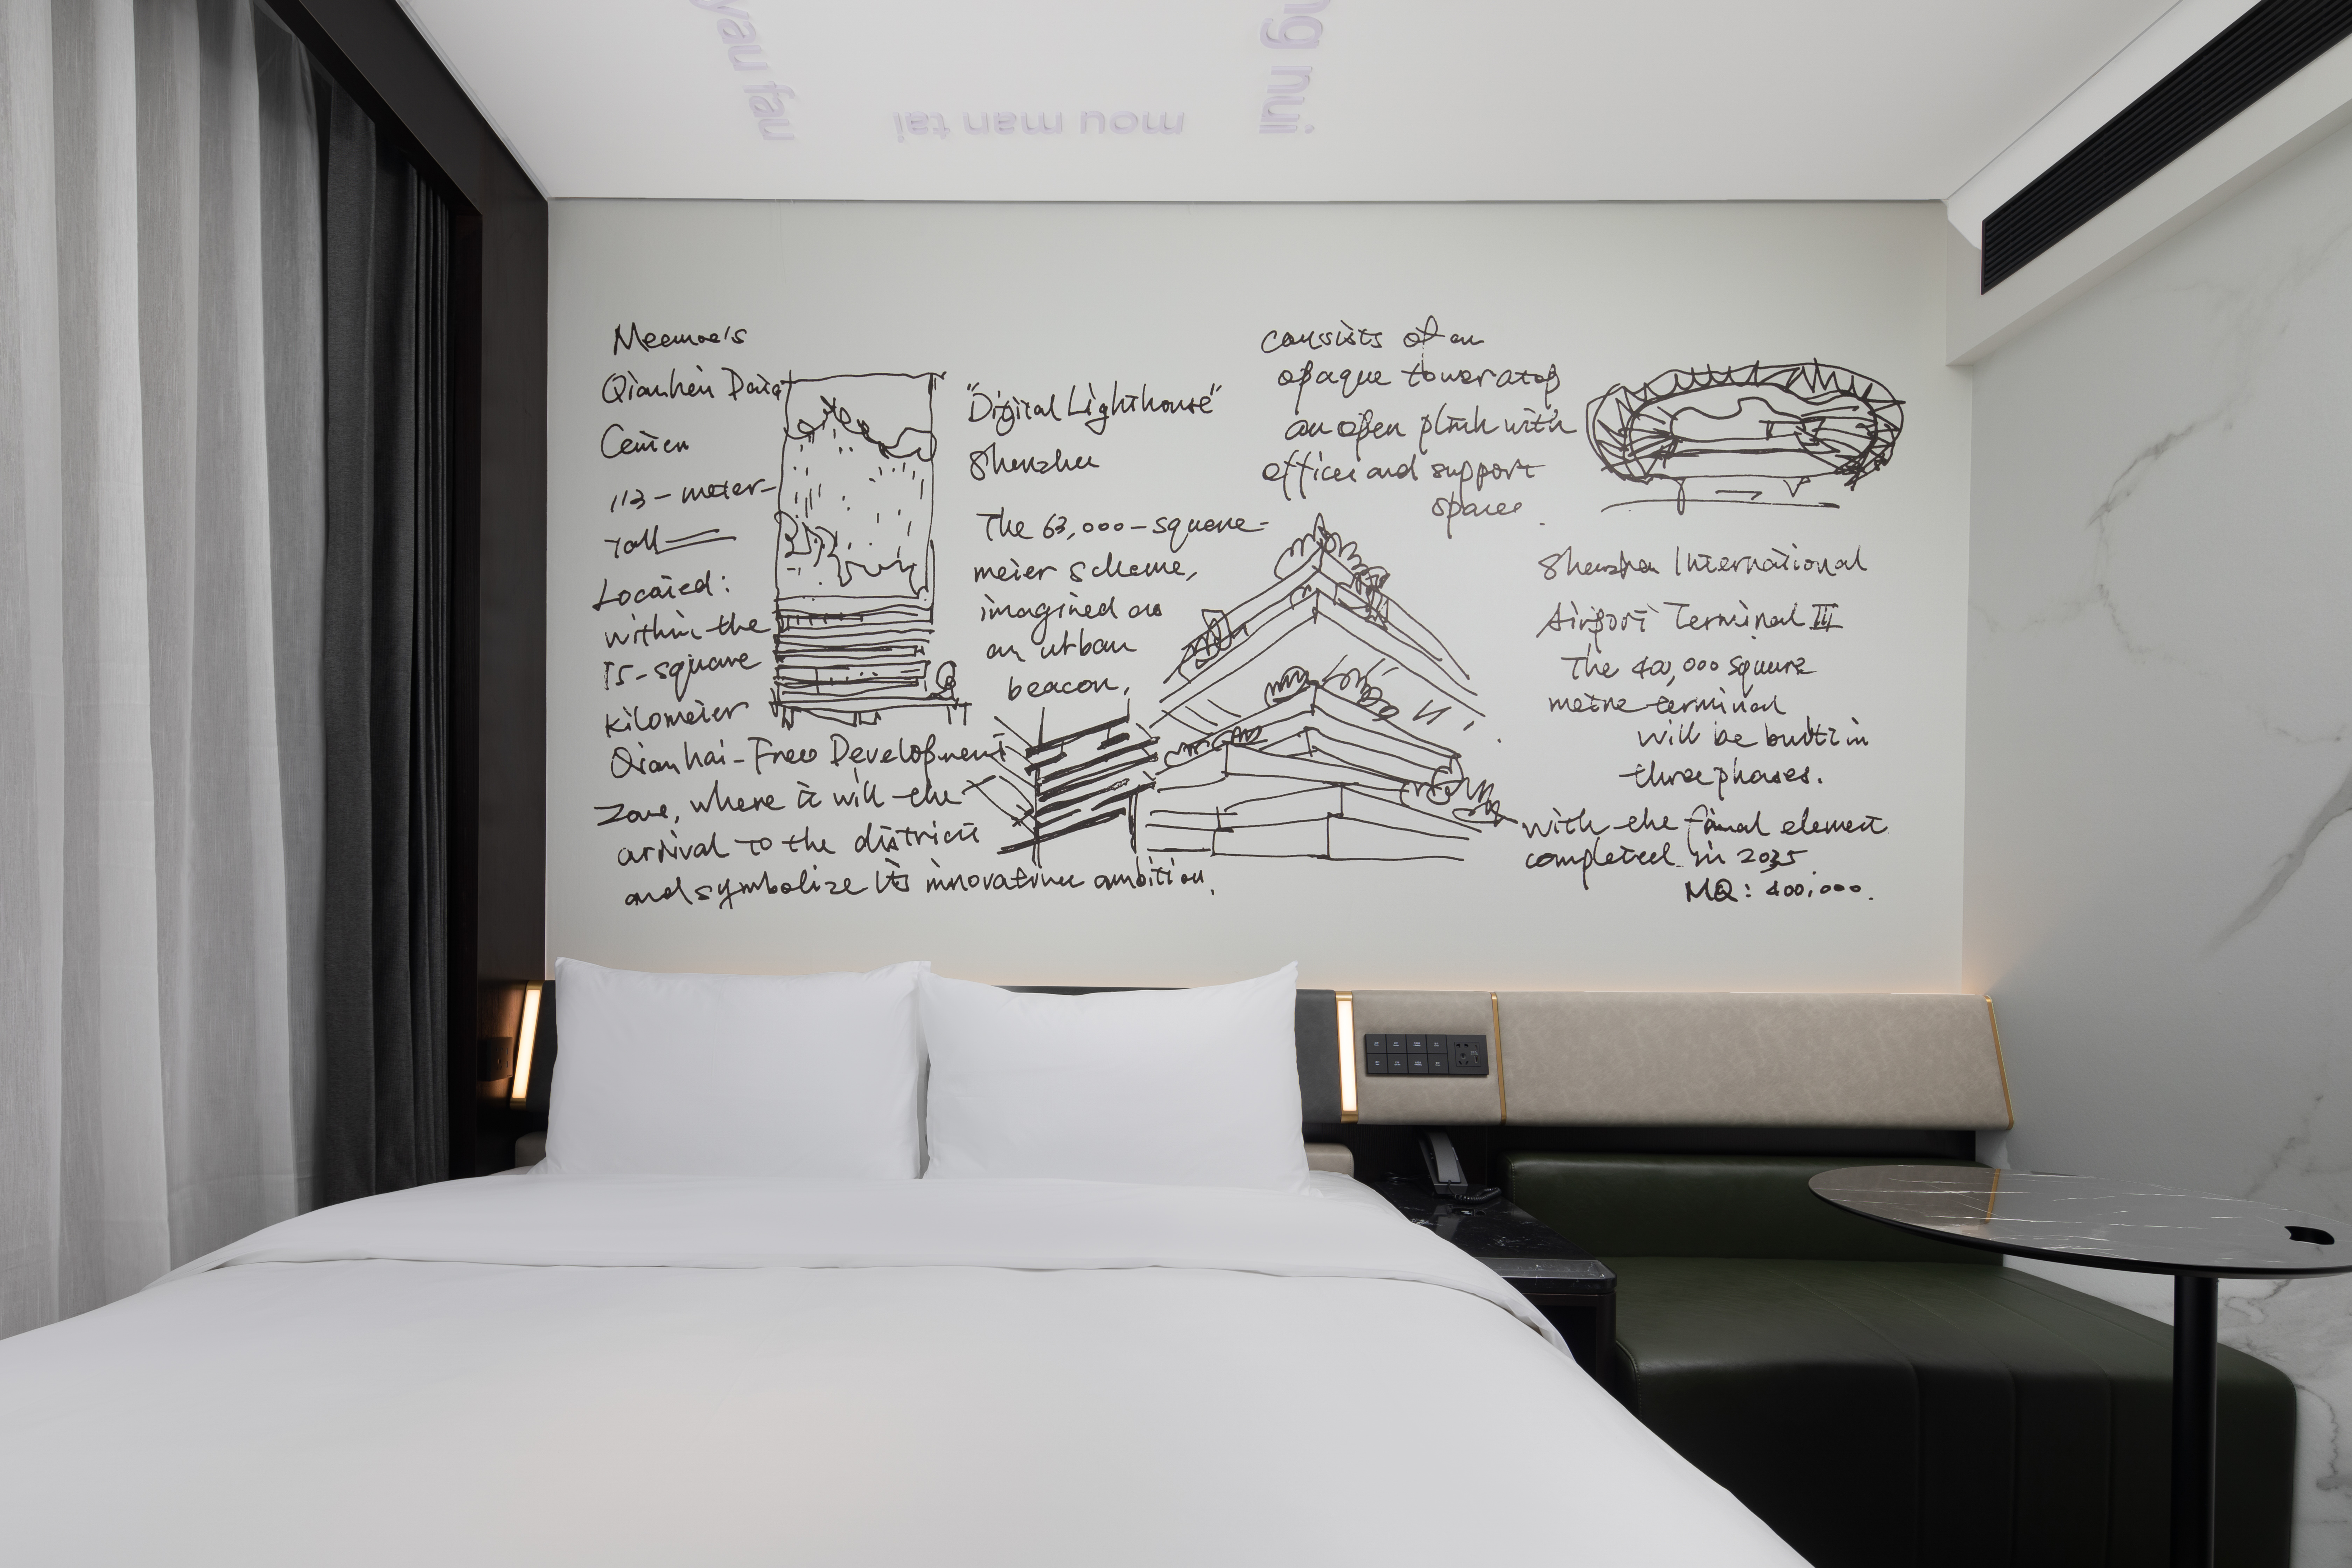 yau fau
mou man tai
ng nui
Mecanoo's
Qianhai Data
Center
113-meter-
Tall
Located:
within the
15-square
kilometer
Qianhai-Free Development
Zone, where it will the
arrival to the district
and symbolize its innovative ambition.
"Digital Lighthouse"
Shenzhen
The 63,000-square-
meter scheme,
imagined as
an urban
beacon,
consists of an
opaque tower atop
an open plinth with
offices and support
spaces.
Shenzhen International
Airport Terminal III
The 400,000 square
metre terminal
will be built in
three phases.
with the final element
completed in 2035
MQ: 400,000.